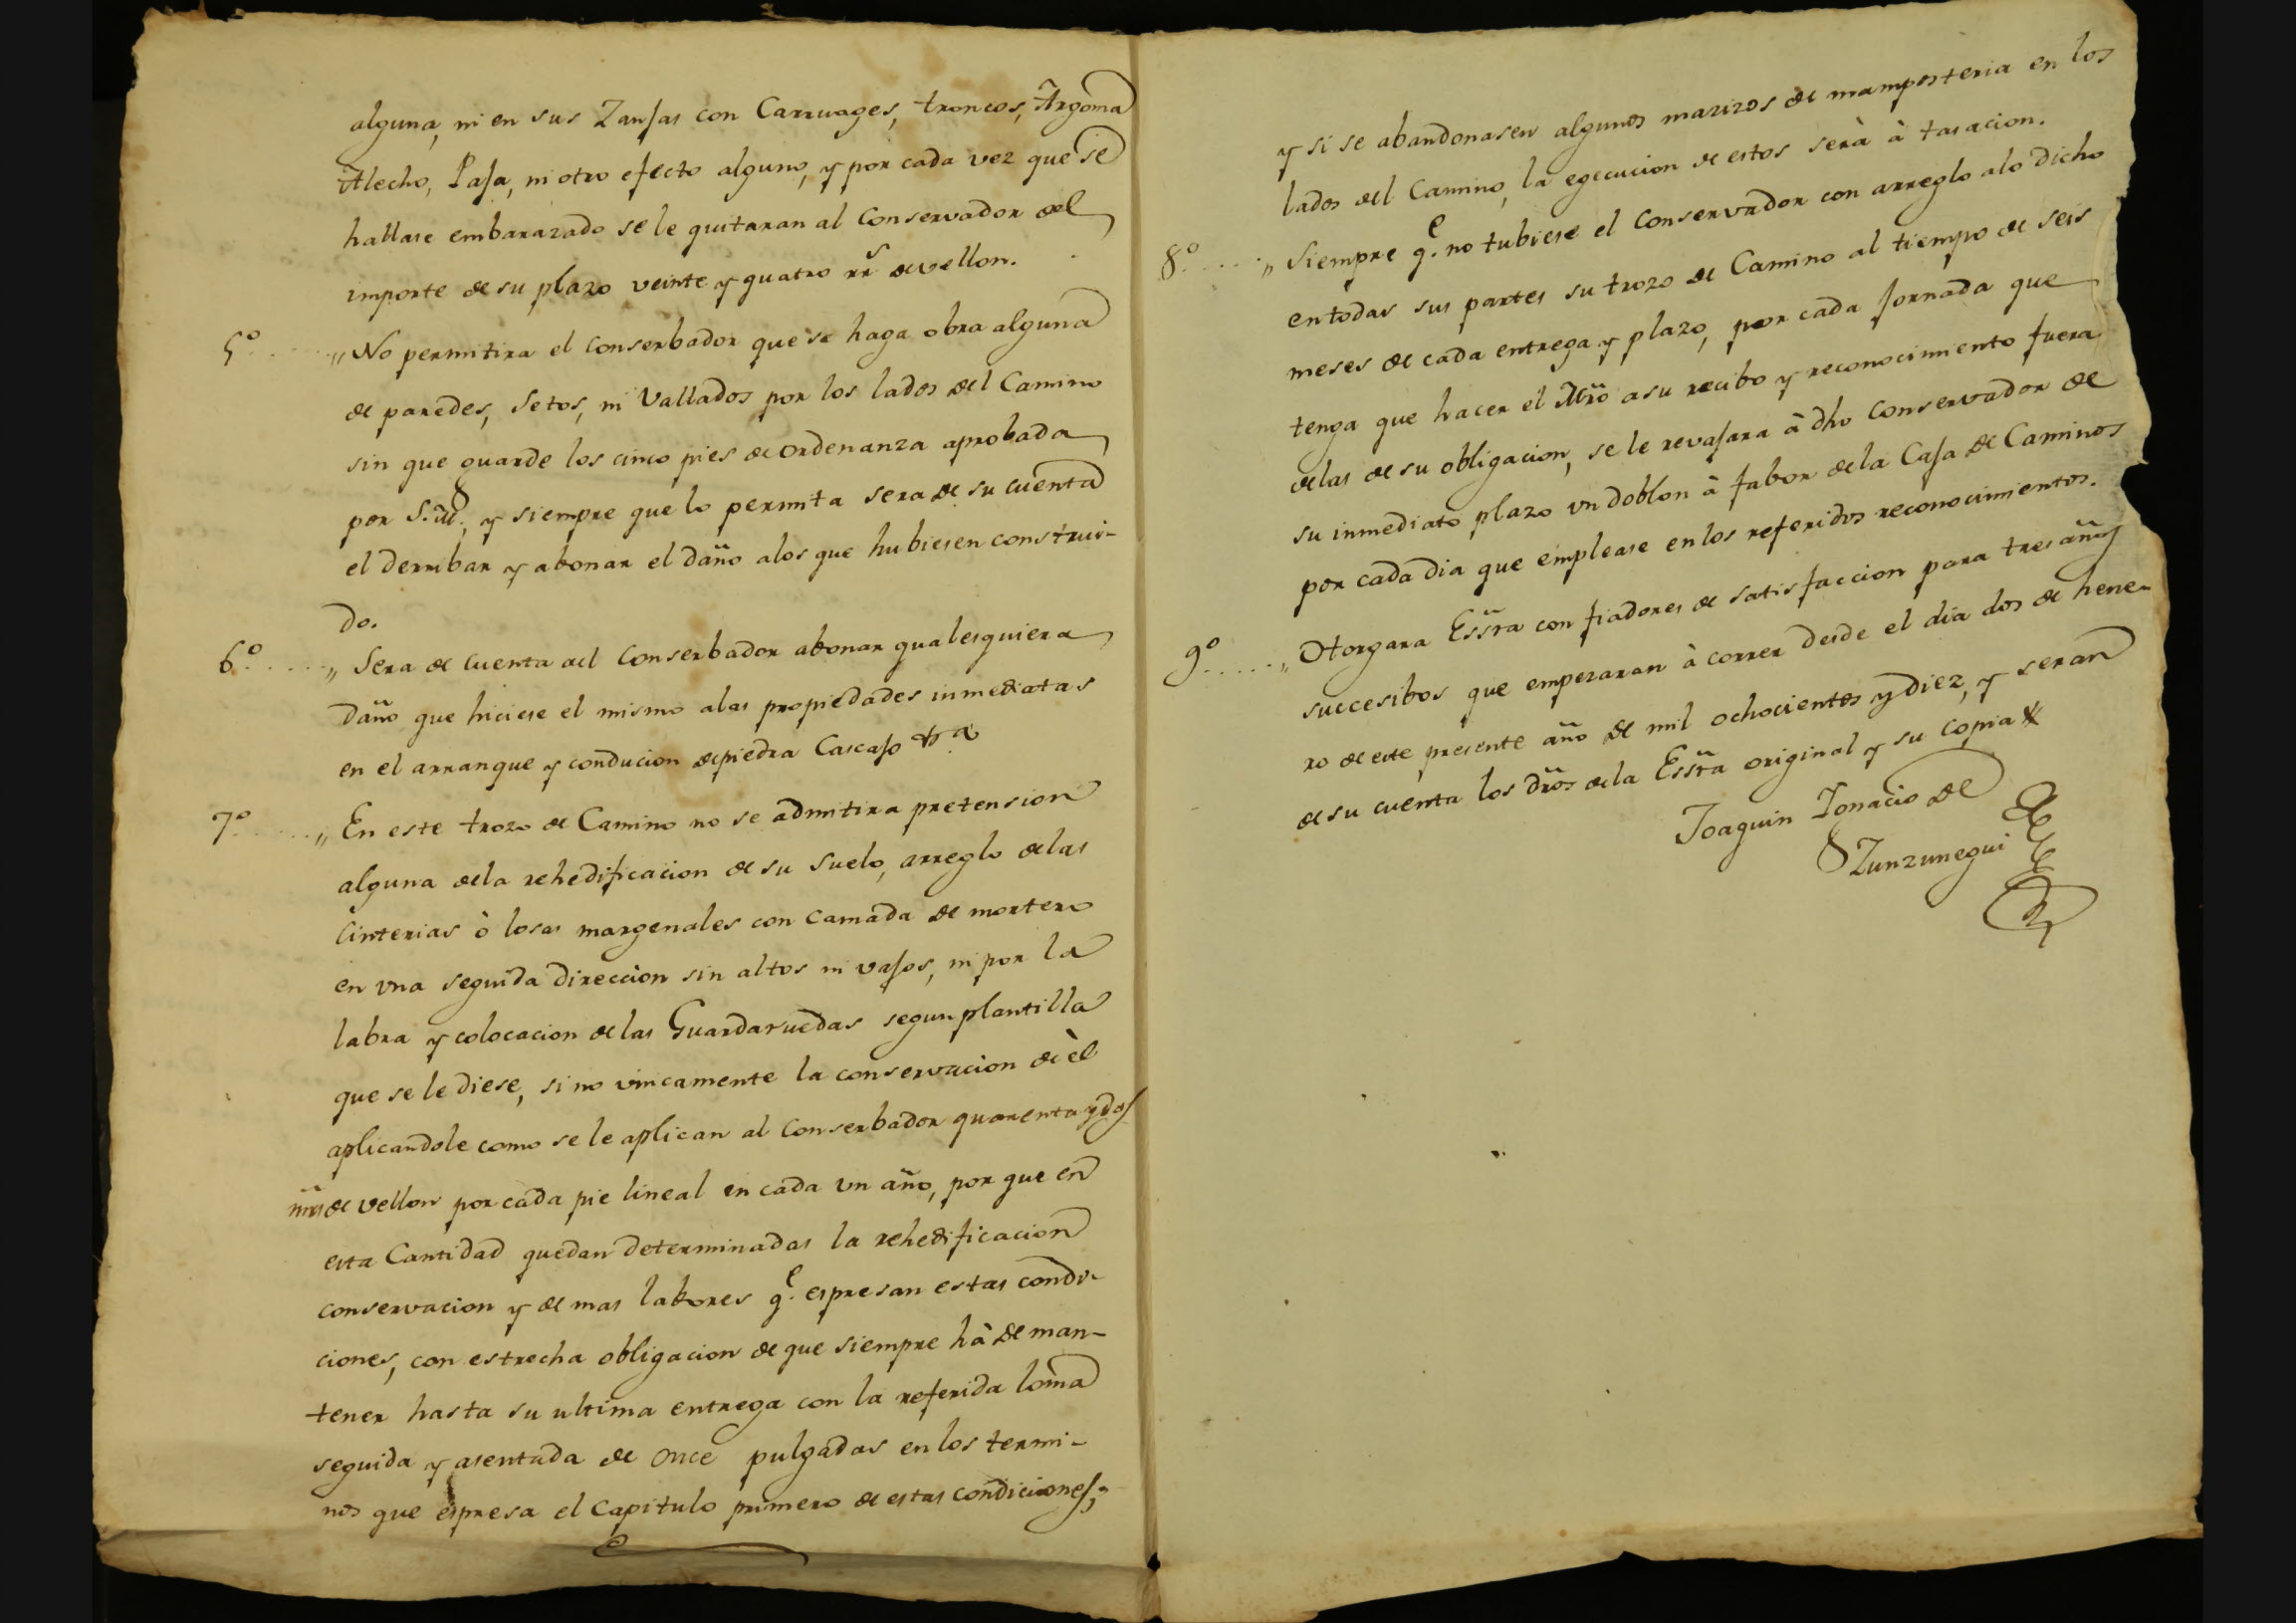 alguna, ni en sus Zanjas con Carruages, troncos, Argoma
Alecho, Paja, ni otro efecto alguno, y por cada vez que se
hallase embarazado se le quitaran al Conservador del
importe de su plazo veinte y quatro rr.s de vellon.
5º...... „ No permitira el Conserbador que se haga obra alguna
de paredes, Setos, ni Vallados por los lados del Camino
sin que guarde los cinco pies de ordenanza aprobada
por S. M. y siempre que lo permita sera de su cuenta
el derribar y abonar el daño alos que hubiesen construi-
do.
6º...... „ Sera de Cuenta del Conserbador abonar qualesquiera
daño que hiciese el mismo alas propiedades inmediatas
en el arranque y conducion de piedra Cascajo &.a
7º...... „ En este trozo de Camino no se admitira pretension
alguna dela rehedificacion de su suelo, arreglo delas
Cinterias ò losas margenales con camada de mortero
en vna seguida direccion sin altos ni vajos, ni por la
labra y colocacion de las Guardaruedas segun plantilla
que se le diese, si no vnicamente la conservacion de èl
aplicandole como se le aplican al Conserbador quarenta y dos
mrs de vellon por cada pie lineal en cada vn año, por que en
esta Cantidad quedan determinadas la rehedificacion
conservacion y de mas labores q.e espresan estas condi-
ciones, con estrecha obligacion de que siempre hà de man-
tener hasta su ultima entrega con la referida loma
seguida y asentada de once pulgadas en los termi-
nos que espresa el Capitulo primero de estas condiciones;
y si se abandonasen algunos mazizos de mamposteria en los
lados del Camino, la egecucion de estos serà à tasacion.
8º...... „ Siempre q.e no tubiese el Conservador con arreglo alo dicho
en todas sus partes su trozo de Camino al tiempo de seis
meses de cada entrega y plazo, por cada Jornada que
tenga que hacer el Mrõ a su recibo y reconocimiento fuera
delas de su obligacion, se le revajara à dho Conservador de
su inmediato plazo vn doblon à fabor dela Caja de Caminos
por cada dia que emplease en los referidos reconocimientos.
9º...... „ Otorgara Essra con fiadores de satisfaccion para tres años
succesibos que empezaran à correr desde el dia dos de hene-
ro de este presente año de mil ochocientos y diez, y seran
de su cuenta los dros dela Essra original y su copia
Joaquin Ignacio de
Zunzunegui